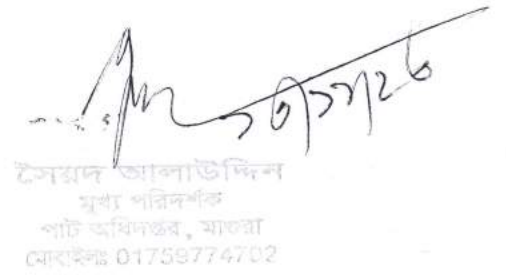 সৈয়দ আলাউদ্দিন
মুখ্য পরিদর্শক
পাট অধিদপ্তর, মাগুরা
মোবাইলঃ 01759774702